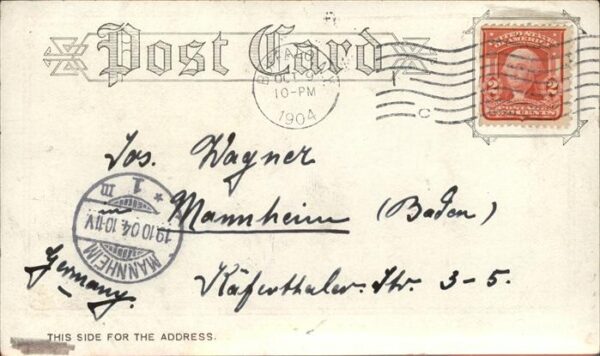 Post Card
OCT 9
10-PM
1904
C
UNITED STATES
OF AMERICA
2 2
POSTAGE
TWO CENTS
Jos. Wagner
Mannheim (Baden)
Käferthaler. Str. 3-5.
Germany.
MANNHEIM
19.10.04.10-11V
* 1 m
THIS SIDE FOR THE ADDRESS.